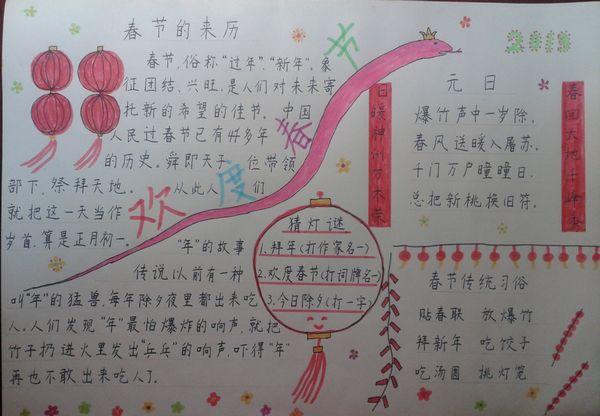 春节的来历
春节，俗称“过年”、“新年”，象
征团结、兴旺，是人们对未来寄
托新的希望的佳节。中国
人民过春节已有4千多年
的历史。舜即天子 位带领
部下，祭拜天地。从此人们
就把这一天当作
岁首，算是正月初一。
欢度春节
“年”的故事
传说以前有一种
叫“年”的猛兽，每年除夕夜里都出来吃
人。人们发现“年”最怕爆炸的响声，就把
竹子扔进火里发出“乒乓”的响声，吓得“年”
再也不敢出来吃人了。
猜灯谜
1.拜年(打作家名一)
2.欢度春节(打词牌名一)
3.今日除夕(打一字)
2013
日暖神州万木荣
元日
爆竹声中一岁除，
春风送暖入屠苏。
千门万户曈曈日，
总把新桃换旧符。
春回大地千峰秀
春节传统习俗
贴春联 放爆竹
拜新年 吃饺子
吃汤圆 挑灯笼